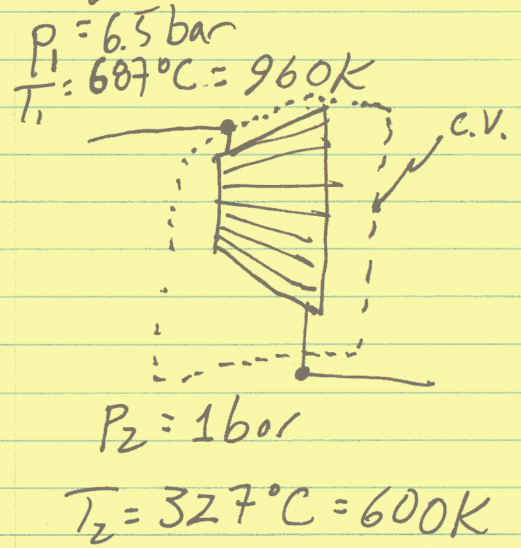 P₁ = 6.5 bar
T₁ = 687°C = 960K
C.V.
P₂ = 1 bar
T₂ = 327°C = 600K